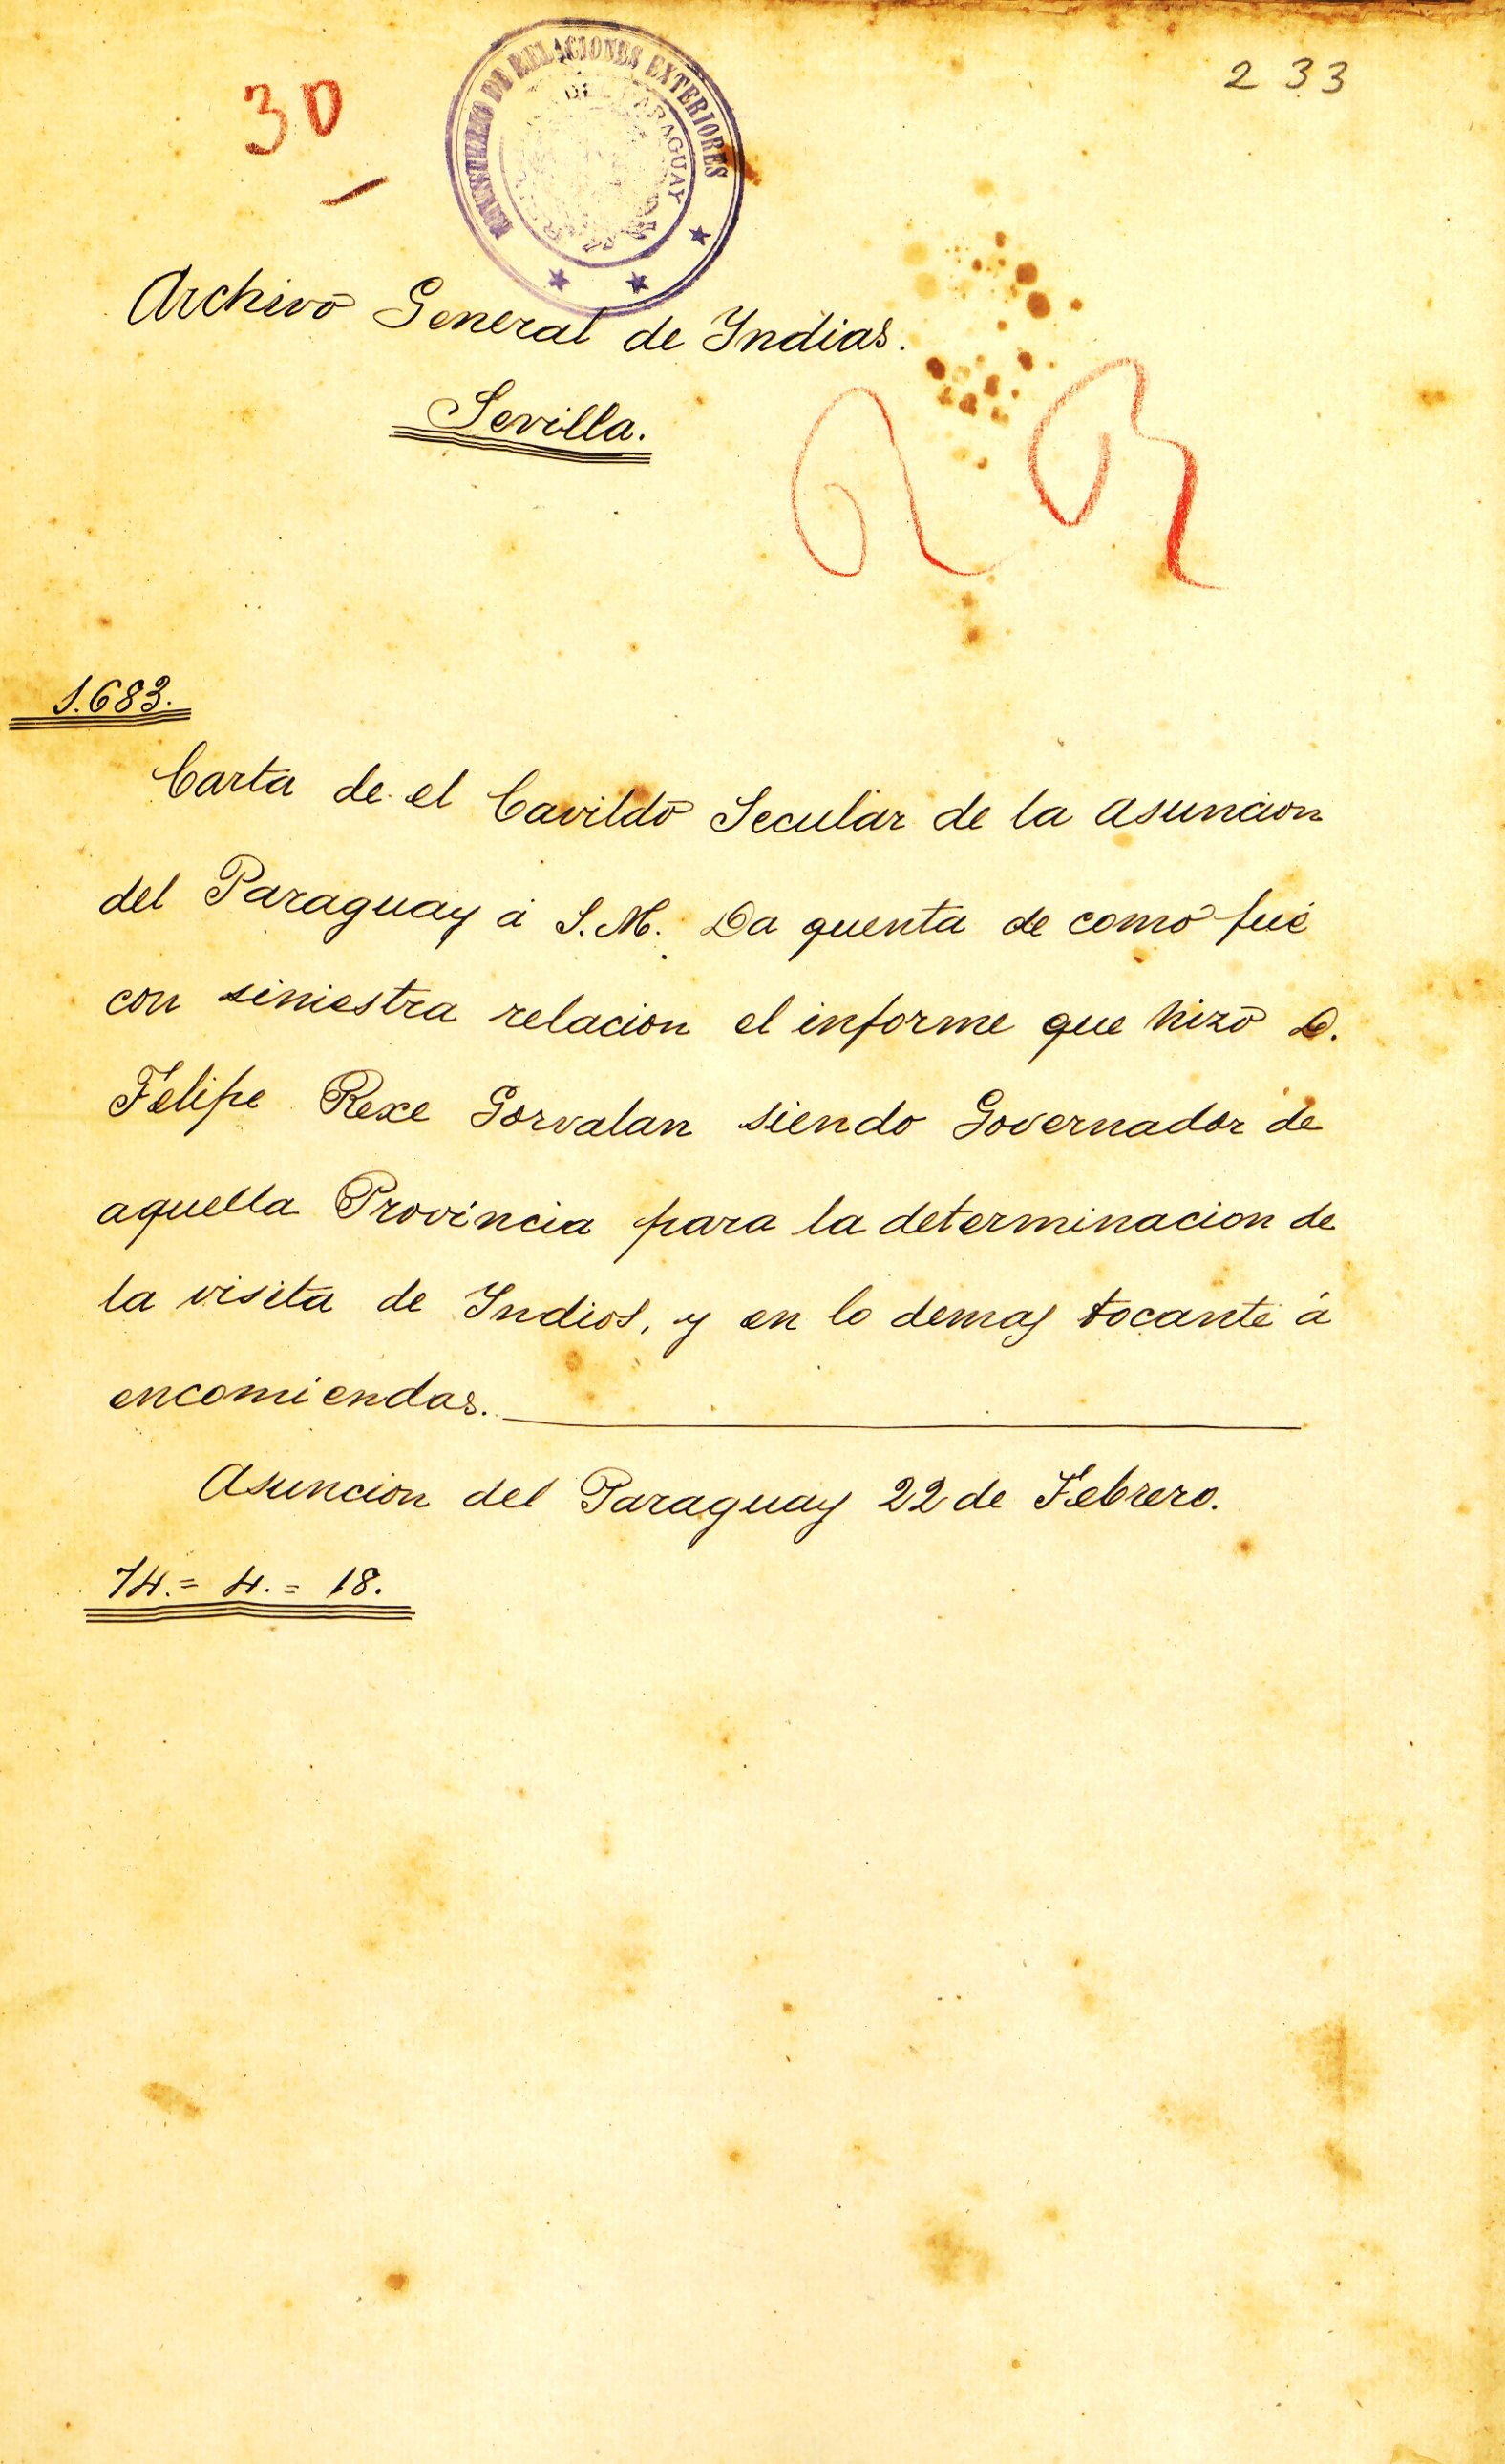 233
30
MINISTERIO DE RELACIONES EXTERIORES
DEL PARAGUAY
Archivo General de Indias.
Sevilla.
1.683.
Carta de el Cavildo Secular de la asuncion
del Paraguay á S. M. Da quenta de como fué
con siniestra relacion el informe que hizo D.
Felipe Rexe Gorvalan siendo Governador de
aquella Provincia para la determinacion de
la visita de Indios, y en lo demas tocante á
encomiendas.
Asuncion del Paraguay 22 de Febrero.
74.= 4.= 18.